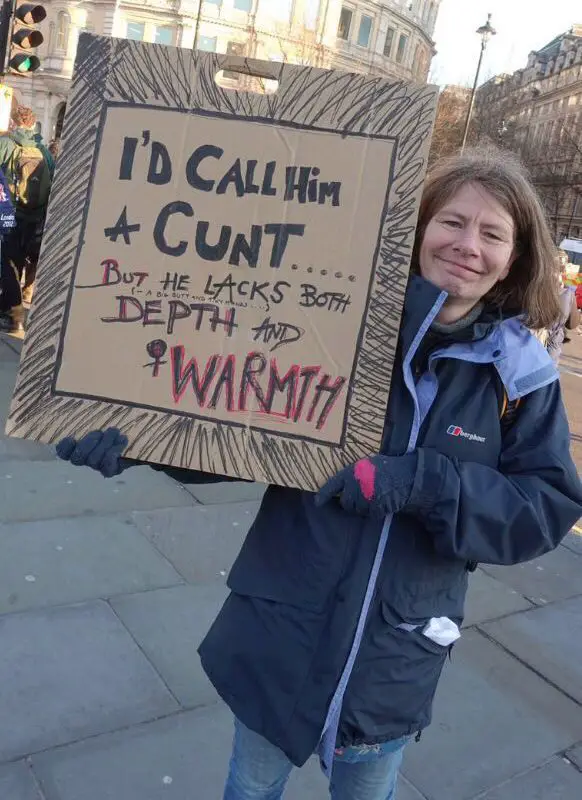 I'D CALL HIM
A CUNT.....
BUT HE LACKS BOTH
(- A BIG BUTT AND TINY HANDS...)
DEPTH AND
♀ WARMTH
berghaus
London
2012